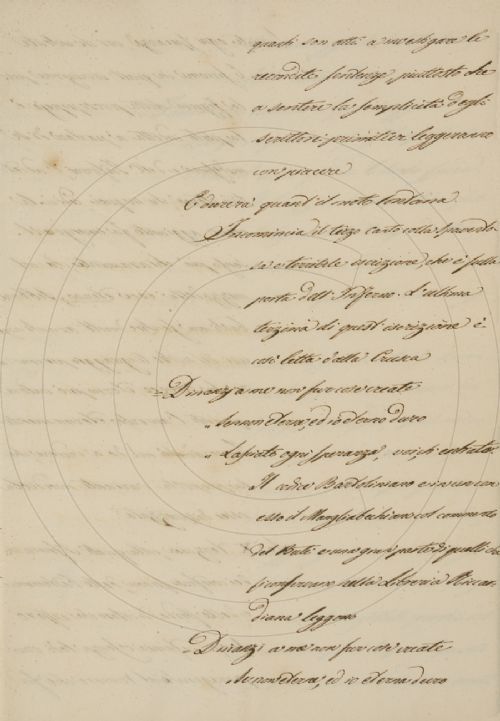 questi son atti a investigare le
recondite sentenze, piuttosto che
a sentire la semplicità degli
scrittori primitivi leggeranno
con piacere
E durerà quant il moto lontana
Incomincia il terzo canto colla spavento-
sa e terribile iscrizione, che è sulla
porta dell'Inferno. L'ultima
terzina di quest'iscrizione è
così letta dalla Crusca
Dinanzi a me non fur cose create
Se non eterne, ed io eterno duro
Lasciate ogni speranza, voi, ch'entrate.
Il codice Bartoliniano e con
esso il Magliabechiano col commento
del Buti e una gran parte di quelli che
si conservano nella Libreria Riccar-
diana leggono
Dinanzi a me non fur cose create
Se non eterne, ed io eterna duro